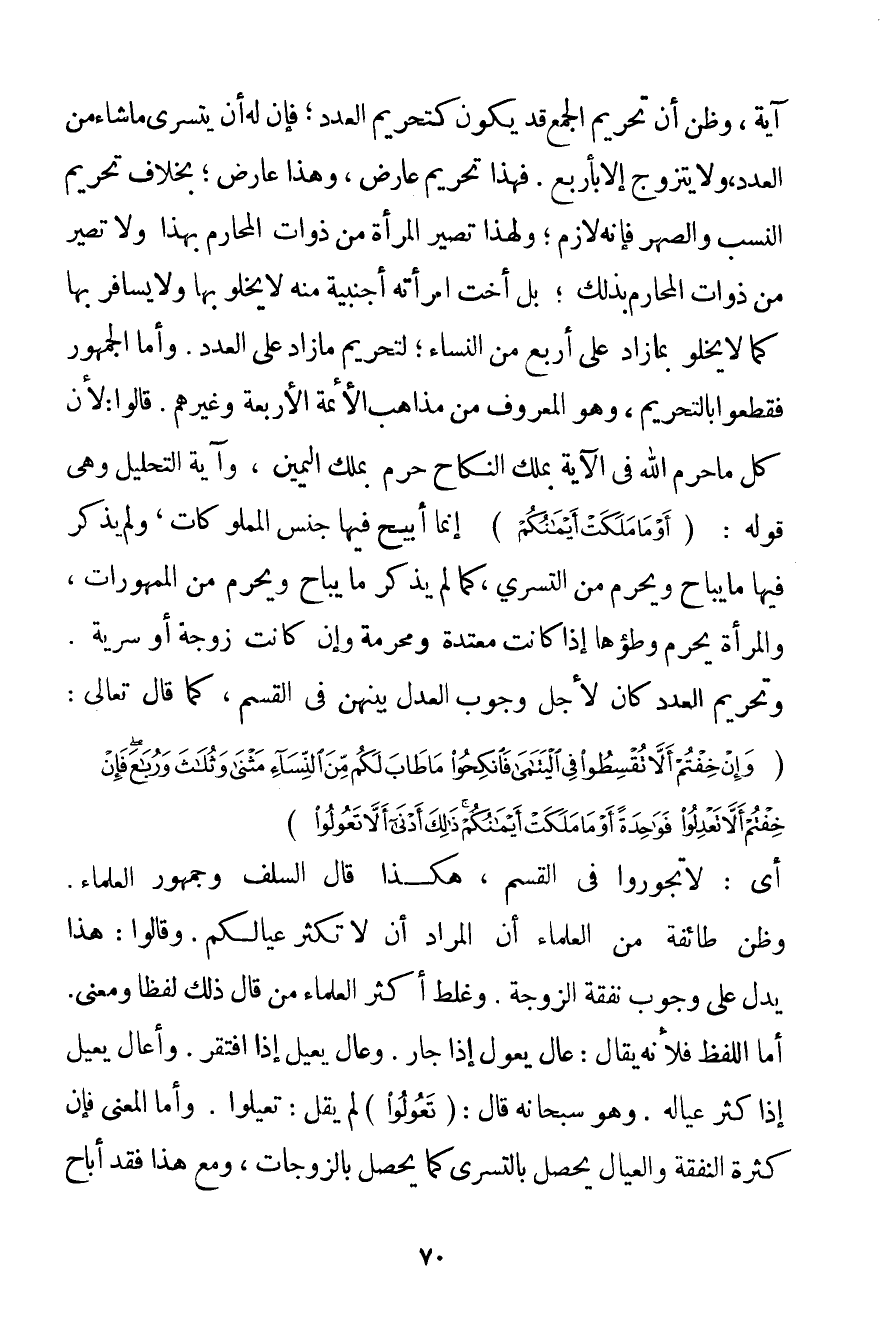 آية ، وظن أن تحريم الجمع قد يكون كتحريم العدد ؛ فإن له أن يتسرى ماشاء من
العدد، ولا يتزوج إلا بأربع . فهذا تحريم عارض ، وهذا عارض ؛ بخلاف تحريم
النسب والصهر فإنه لازم ؛ ولهذا تصير المرأة من ذوات المحارم بهذا ولا تصير
من ذوات المحارم بذلك ؛ بل أخت امرأته أجنبية منه لا يخلو بها ولا يسافر بها
كما لا يخلو بمازاد على أربع من النساء ؛ لتحريم مازاد على العدد . وأما الجمهور
فقطعوا بالتحريم ، وهو المعروف من مذاهب الأئمة الأربعة وغيرهم . قالوا : لأن
كل ماحرم الله فى الآية بملك النكاح حرم بملك اليمين ، وآية التحليل وهى
قوله : ( أَوْ مَا مَلَكَتْ أَيْمَٰنُكُمْ ) إنما أبيح فيها جنس المملوكات ، ولم يذكر
فيها مايباح ويحرم من التسري ، كما لم يذكر ما يباح ويحرم من الممهورات ،
والمرأة يحرم وطؤها إذا كانت معتدة ومحرمة وإن كانت زوجة أو سرية .
وتحريم العدد كان لأجل وجوب العدل بينهن فى القسم ، كما قال تعالى :
( وَإِنْ خِفْتُمْ أَلَّا تُقْسِطُوا۟ فِى ٱلْيَتَٰمَىٰ فَٱنكِحُوا۟ مَا طَابَ لَكُم مِّنَ ٱلنِّسَآءِ مَثْنَىٰ وَثُلَٰثَ وَرُبَٰعَ ۖ فَإِنْ
خِفْتُمْ أَلَّا تَعْدِلُوا۟ فَوَٰحِدَةً أَوْ مَا مَلَكَتْ أَيْمَٰنُكُمْ ۚ ذَٰلِكَ أَدْنَىٰٓ أَلَّا تَعُولُوا۟ )
أى : لا تجوروا فى القسم ، هكـذا قال السلف وجمهور العلماء .
وظن طائفة من العلماء أن المراد أن لا تكثر عيالكم . وقالوا : هذا
يدل على وجوب نفقة الزوجة . وغلط أكثر العلماء من قال ذلك لفظا ومعنى .
أما اللفظ فلأنه يقال : عال يعول إذا جار . وعال يعيل إذا افتقر . وأعال يعيل
إذا كثر عياله . وهو سبحانه قال : ( تَعُولُوا۟ ) لم يقل : تعيلوا . وأما المعنى فإن
كثرة النفقة والعيال يحصل بالتسرى كما يحصل بالزوجات ، ومع هذا فقد أباح
٧٠